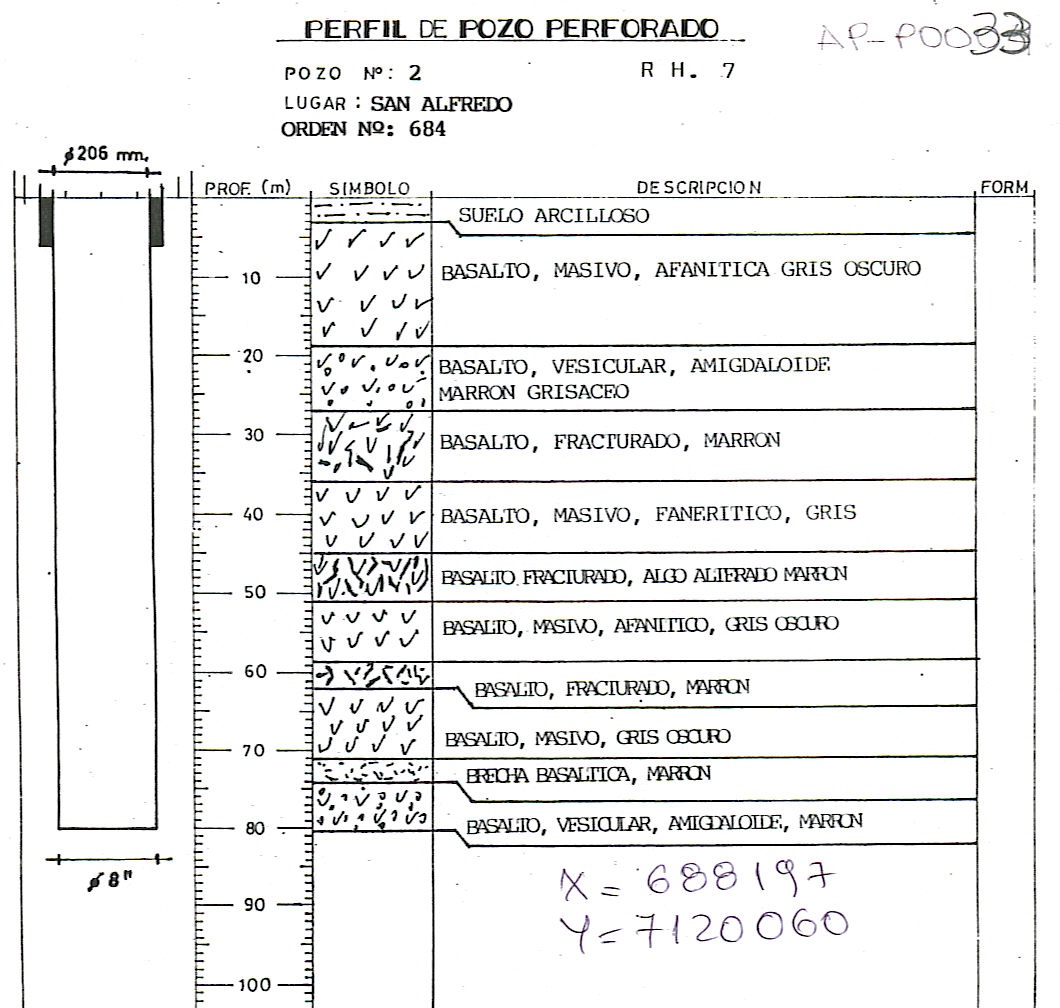 PERFIL DE POZO PERFORADO
AP-P0033
POZO Nº: 2
R H. 7
LUGAR : SAN ALFREDO
ORDEN Nº: 684
ø206 mm.
PROF. (m)
SIMBOLO
DESCRIPCION
FORM
SUELO ARCILLOSO
10
BASALTO, MASIVO, AFANITICA GRIS OSCURO
20
BASALTO, VESICULAR, AMIGDALOIDE
MARRON GRISACEO
30
BASALTO, FRACTURADO, MARRON
40
BASALTO, MASIVO, FANERITICO, GRIS
BASALTO FRACTURADO, ALGO ALTERADO MARRON
50
BASALTO, MASIVO, AFANITICO, GRIS OSCURO
60
BASALTO, FRACTURADO, MARRON
BASALTO, MASIVO, GRIS OSCURO
70
BRECHA BASALTICA, MARRON
80
BASALTO, VESICULAR, AMIGDALOIDE, MARRON
ø 8"
X = 688197
90
Y = 7120060
100